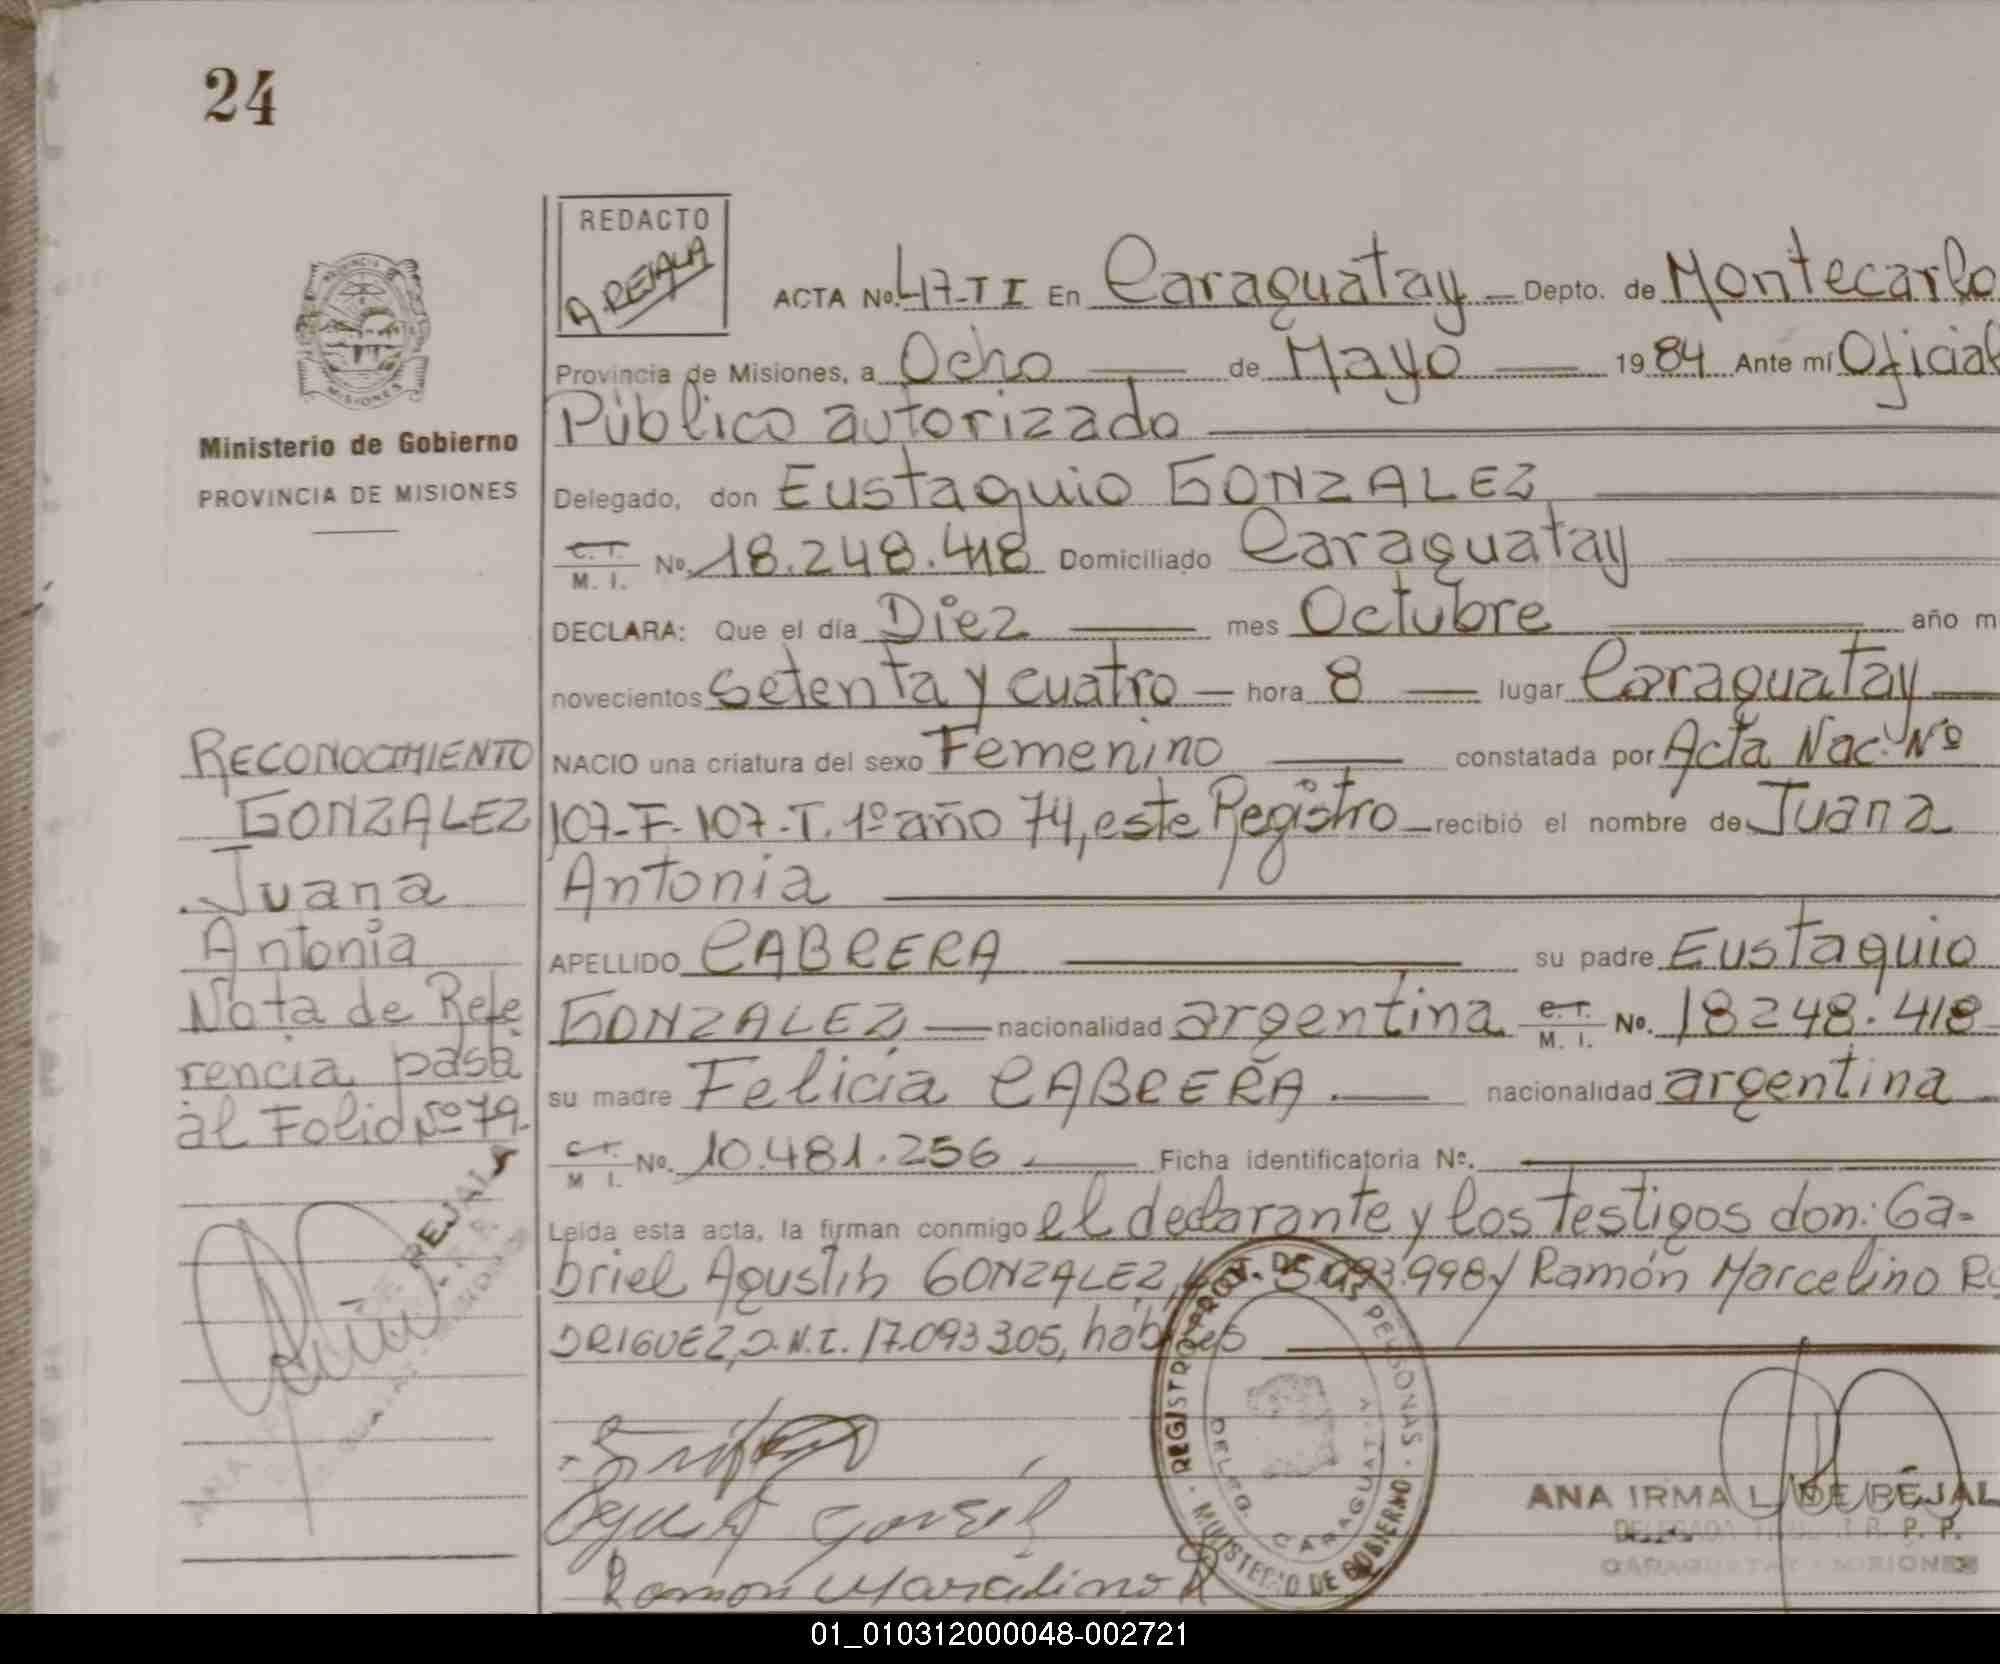 24
REDACTO
A. REJALA
ACTA No. 47-T I En Caraguatay Depto. de Montecarlo
Provincia de Misiones, a Ocho de Mayo 1984 Ante mí Oficial
Público autorizado
Ministerio de Gobierno
PROVINCIA DE MISIONES
Delegado, don Eustaquio GONZALEZ
C.T. M. I. No. 18.248.418 Domiciliado Caraguatay
DECLARA: Que el día Diez mes Octubre año m
novecientos setenta y cuatro hora 8 lugar Caraguatay
NACIO una criatura del sexo Femenino constatada por Acta Nac. Nº
107-F-107-T. 1º año 74, este Registro recibió el nombre de Juana
Antonia
APELLIDO CABRERA su padre Eustaquio
GONZALEZ nacionalidad argentina C.T. M. I. No. 18248.418
su madre Felicia CABRERA nacionalidad argentina
C.T. M I. No. 10.481.256 Ficha identificatoria No.
Leída esta acta, la firman conmigo el declarante y los testigos don: Ga-
briel Agustín GONZALEZ, 5.093.998 y Ramón Marcelino Ro
DRIGUEZ, D.N.I. 17.093.305, hábiles
RECONOCIMIENTO
GONZALEZ
Juana
Antonia
Nota de Refe
rencia pasa
al Folio Nº 79.
REJALA
REGISTRO PROV. DE LAS PERSONAS
MINISTERIO DE GOBIERNO
DELEG. CARAGUATAY
Ramón Marcelino R
ANA IRMA L. DE REJAL
DELEGADA TITULAR R. P. P.
CARAGUATAY - MISIONES
01_010312000048-002721